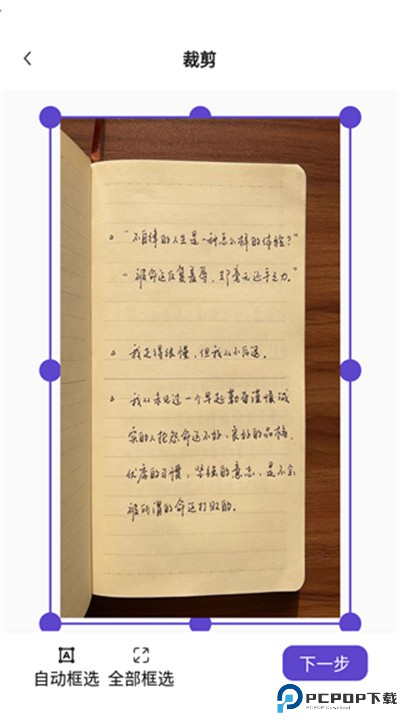 裁剪
。"不自律的人生是一种怎么样的体验？"
- 被命运反复羞辱，却毫无还手之力。"
。我走得很慢，但我从不后退。
。我从未见过一个早起勤奋谨慎诚
实的人抱怨命运不好，良好的品格，
优秀的习惯，坚强的意志，是不会
被所谓的命运打败的。
自动框选 全部框选
下一步
PCPOP下载
PCPOP Download